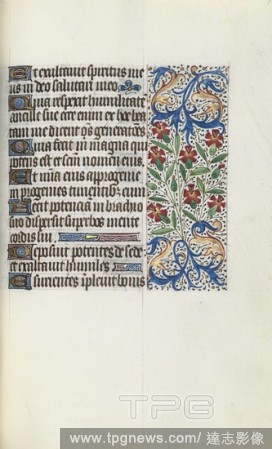 Et exultauit spiritus me
us in deo salutari meo.
Quia respexit humilitatē
ancille sue ecce enim ex hoc bea
tam me dicent oēs generatiōes
Quia fecit m magna qui
potens est et scm nomen eius
Et mīa eius a progenie
in progenies timentibus eum
Fecit potentiam in brachio
suo dispersit superbos mente
cordis sui.
Deposuit potentes de sede
et exaltauit humiles.
Esurientes īpleuit bonis
TPG
www.tpgnews.com/達志影像